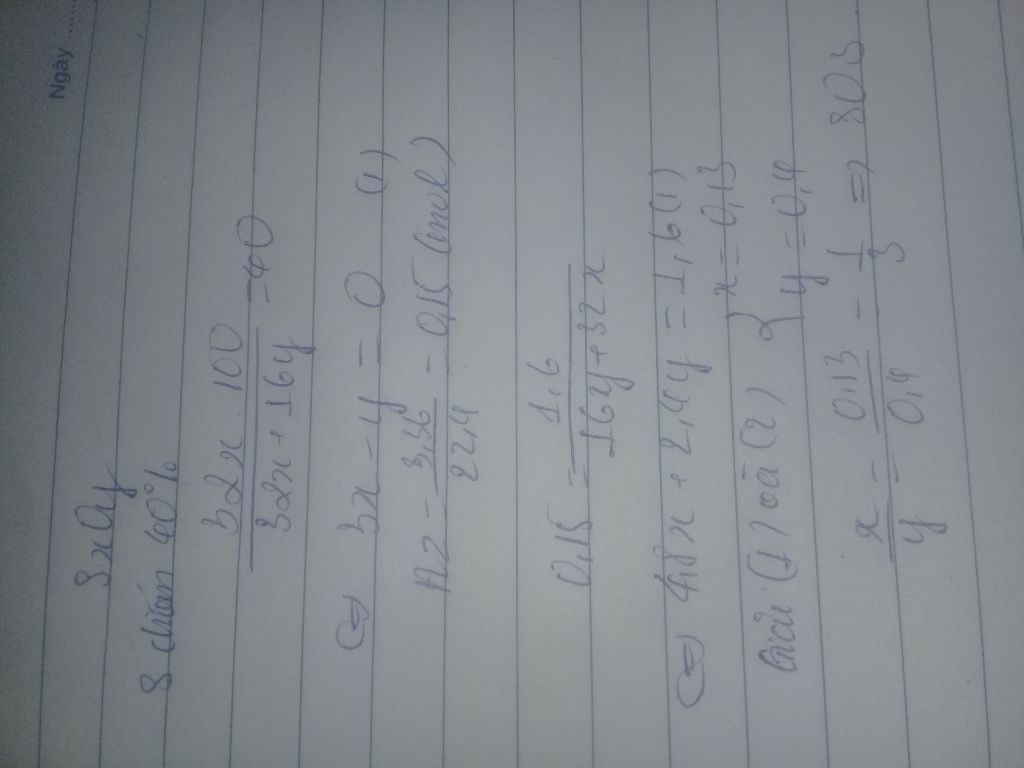 Ngày ........
SxOy
S chiếm 40%
32x . 100 / 32x + 16y = 40
(=) 3x - y = 0 (1)
n2 = 3,36 / 22,4 = 0,15 (mol)
0,15 = 1,6 / 16y + 32x
(=) 4,8x + 2,4y = 1,6 (1)
Giải (1) và (2) { x = 0,13
y = 0,4
x / y = 0,13 / 0,4 = 1 / 3 => SO3